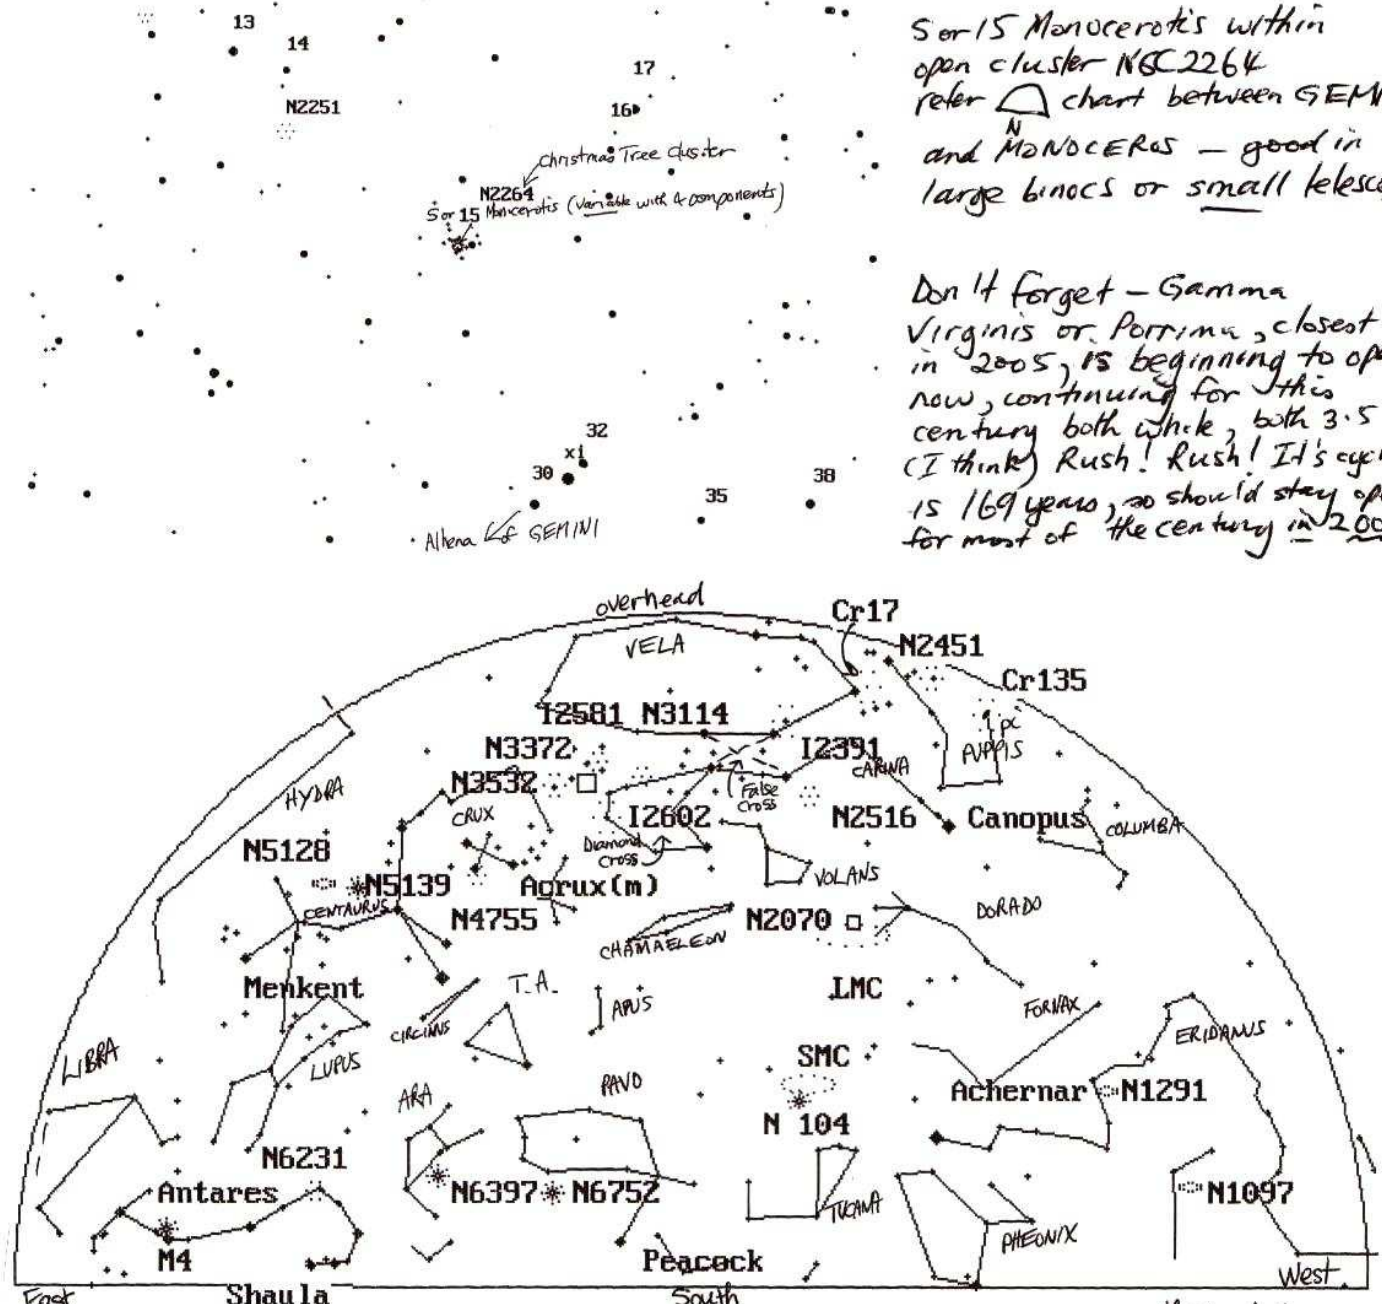 13
14
N2251
17
16
Christmas Tree Cluster
N2264
S or 15 Monocerotis (variable with 4 components)
32
xi
30
38
35
Alhena of GEMINI
S or 15 Monocerotis within
open cluster NGC2264
refer chart between
N
and MONOCEROS — good in
large binocs or small
Don't forget — Gamma
Virginis or Porrima, closest
in 2005, is beginning to
now, continuing for this
century both white, both 3.5
(I think) Rush! Rush! It's
is 169 years, so should stay
for most of the century in
overhead
Cr17
VELA
N2451
Cr135
I2581 N3114
N3372
I2391
PUPPIS
CARINA
HYDRA
N3532
False
Cross
CRUX
I2602
N2516
Canopus
COLUMBA
N5128
Diamond
Cross
VOLANS
N5139
Acrux(m)
CENTAURUS
N4755
N2070
DORADO
CHAMAELEON
Menkent
T.A.
LMC
APUS
FORNAX
CIRCINUS
ERIDANUS
LIBRA
LUPUS
SMC
PAVO
Achernar
N1291
ARA
N 104
N6231
Antares
N6397
N6752
N1097
TUCANA
PHEONIX
M4
Peacock
West
East
Shaula
South